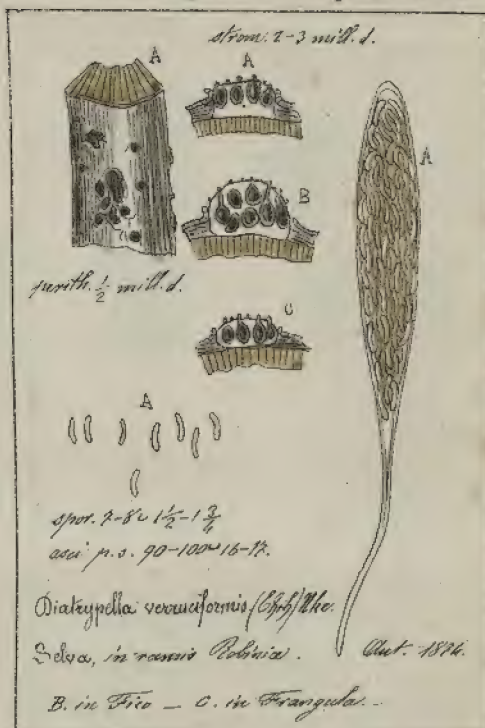 strom. 2-3 mill. d.
A
A
A
B
perith. 1/2 mill. d.
C
A
spor. 7-8 ≈ 1 1/2 - 1 3/4
asci p. s. 90-100 ≈ 16-17.
Diatrypella verruciformis, (Ehrh) Nke.
Selva, in ramis Robinia. Aut.
B. in Fico _ C. in Frangula._